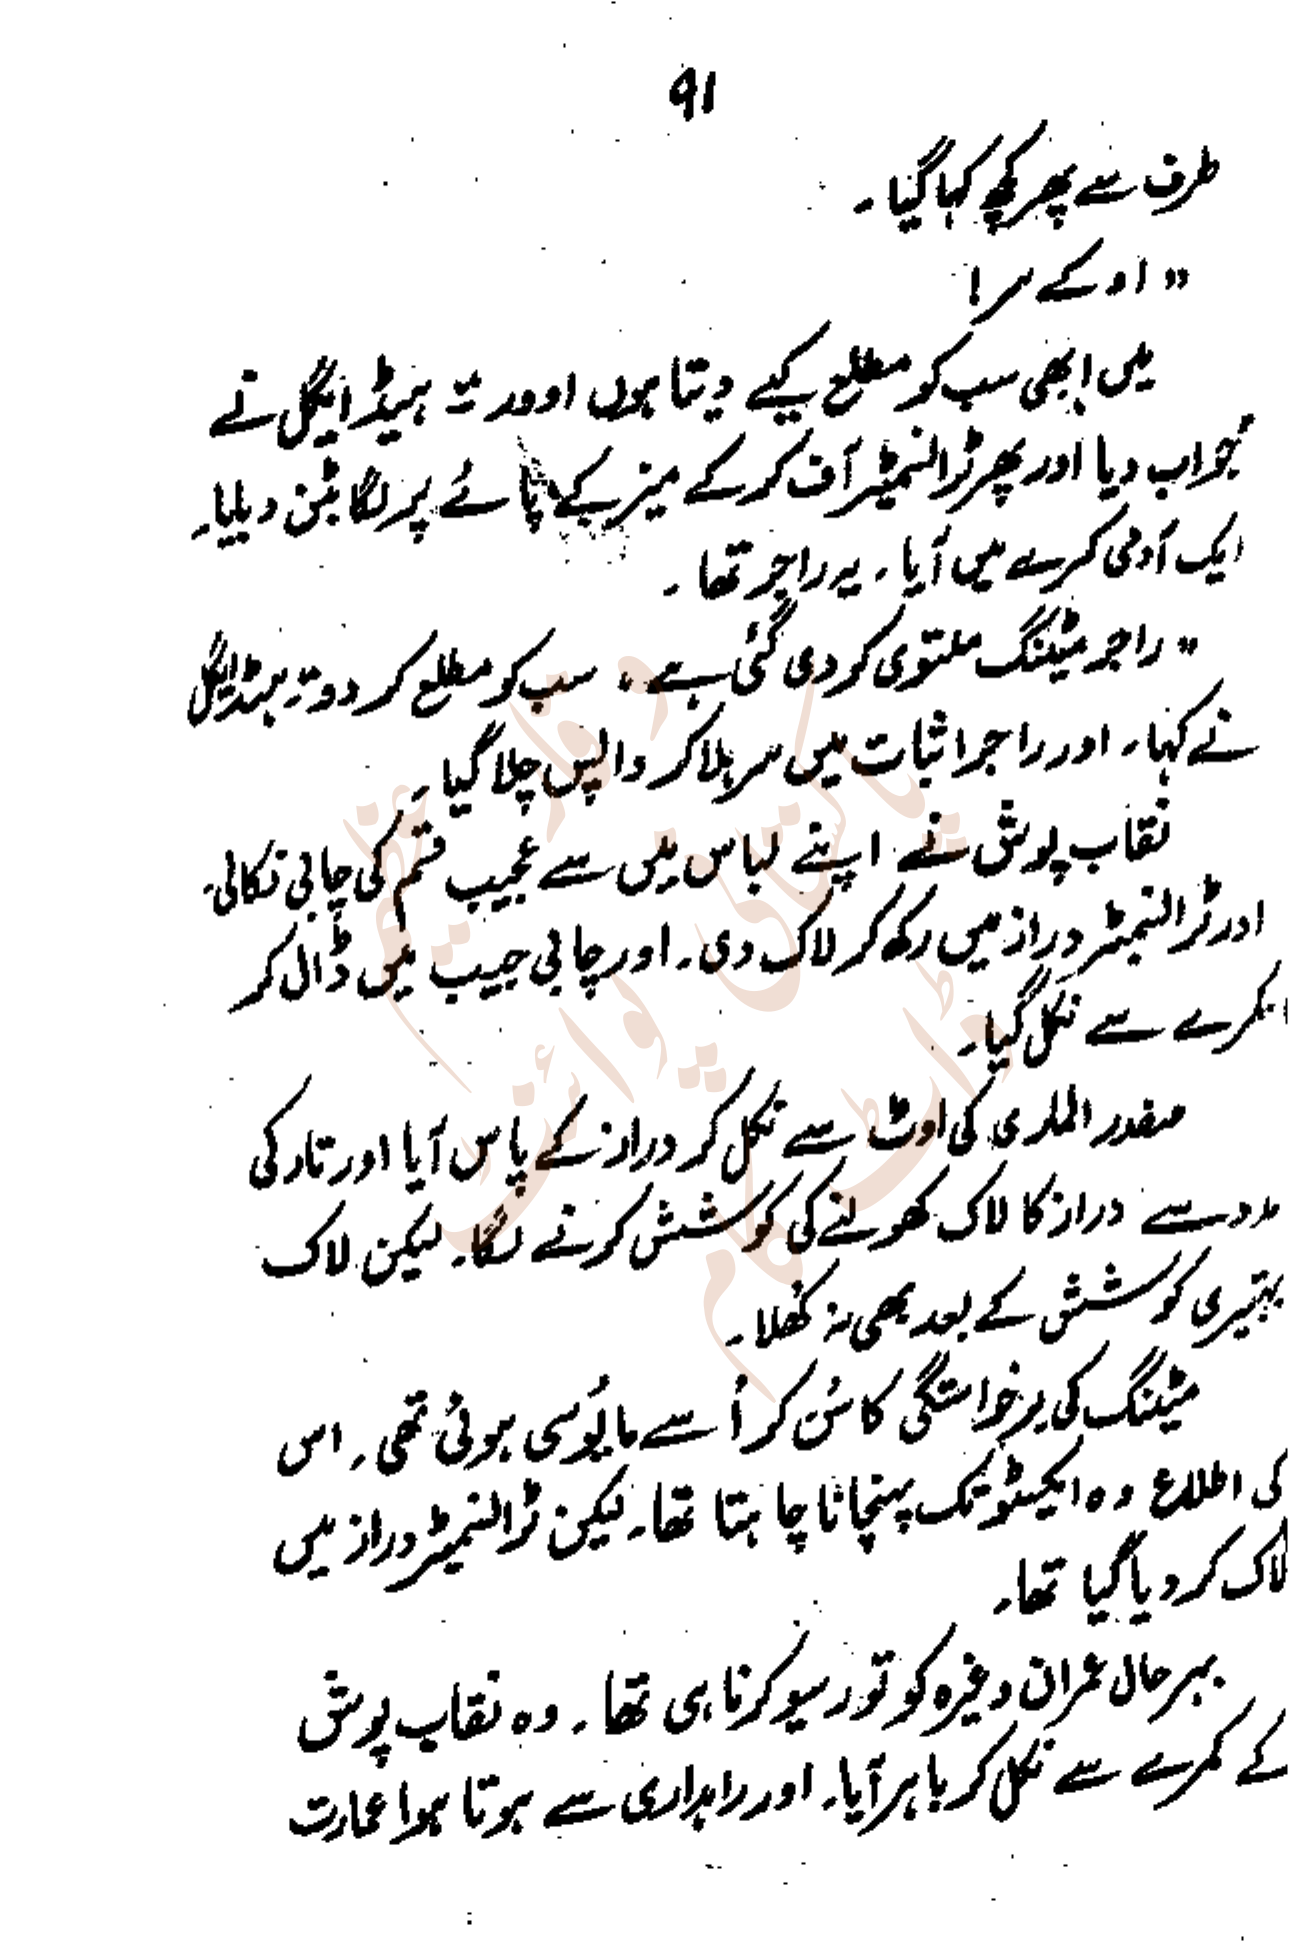 ۹۱
طرف سے پھر کچھ کہا گیا۔
" او کے سر!
میں ابھی سب کو مطلع کیے دیتا ہوں اوور " ہیڈ ایگل نے
جواب دیا اور پھر ٹرانسمیٹر آف کر کے میز کے پائے پر لگا بٹن دبایا۔
ایک آدمی کمرے میں آیا۔ یہ راجر تھا۔
" راجر میٹنگ ملتوی کر دی گئی ہے، سب کو مطلع کر دو " ہیڈ ایگل
نے کہا۔ اور راجر اثبات میں سر ہلا کر واپس چلا گیا۔
نقاب پوش نے اپنے لباس میں سے عجیب قسم کی چابی نکالی۔
اور ٹرانسمیٹر دراز میں رکھ کر لاک دی۔ اور چابی جیب میں ڈال کر
کمرے سے نکل گیا۔
صفدر الماری کی اوٹ سے نکل کر دراز کے پاس آیا اور تار کی
مدد سے دراز کا لاک کھولنے کی کوشش کرنے لگا۔ لیکن لاک
بہتیری کوشش کے بعد بھی نہ کھلا۔
میٹنگ کی برخواستگی کا سُن کر اُسے مایُوسی ہوئی تھی۔ اس
کی اطلاع وہ ایکسٹو تک پہنچانا چاہتا تھا۔ لیکن ٹرانسمیٹر دراز میں
لاک کر دیا گیا تھا۔
بہرحال عمران وغیرہ کو تو رسیو کرنا ہی تھا۔ وہ نقاب پوش
کے کمرے سے نکل کر باہر آیا۔ اور راہداری سے ہوتا ہوا عمارت
پاکستانی پوائنٹ
ڈاٹ کام